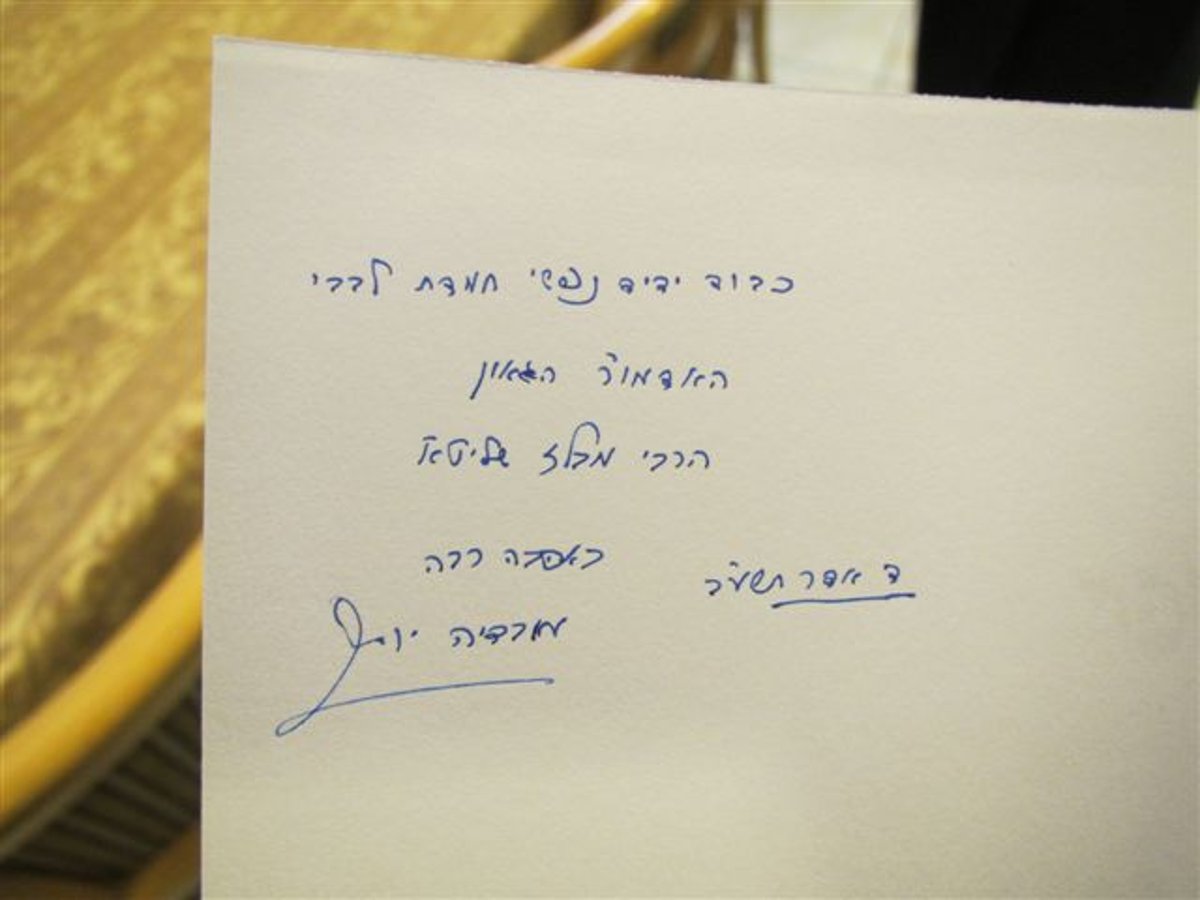 כבוד ידיד נפשי חמדת לבבי
האדמו״ר הגאון
הרבי מבלז שליט״א
באהבה רבה
ד אדר תשע״ב
מורדיה יוסף